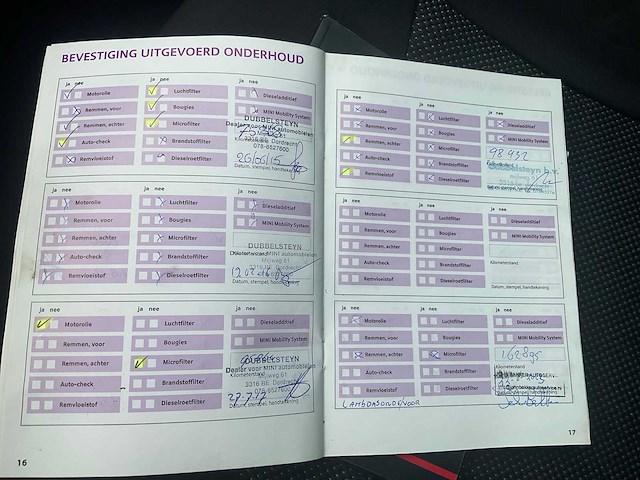 BEVESTIGING UITGEVOERD ONDERHOUD
ja nee
Motorolie
Remmen, voor
Remmen, achter
Auto-check
Remvloeistof
ja nee
Luchtfilter
Bougies
Microfilter
Brandstoffilter
Dieselroetfilter
ja nee
Dieseladditief
MINI Mobility System
DUBBELSTEYN
Dealer voor MINI automobielen
3316 BE Dordrecht
078-6527600
26/06/15
Datum, stempel, handtekening
ja nee
Motorolie
Remmen, voor
Remmen, achter
Auto-check
Remvloeistof
ja nee
Luchtfilter
Bougies
Microfilter
Brandstoffilter
Dieselroetfilter
ja nee
Dieseladditief
MINI Mobility System
DUBBELSTEYN
Mijlweg 61
3316 BE Dordrecht
Datum, stempel, handtekening
ja nee
Motorolie
Remmen, voor
Remmen, achter
Auto-check
Remvloeistof
ja nee
Luchtfilter
Bougies
Microfilter
Brandstoffilter
Dieselroetfilter
ja nee
Dieseladditief
MINI Mobility System
DUBBELSTEYN
Dealer voor MINI automobielen
Kilometerstand
Mijlweg 61
3316 BE Dordrecht
078-6527600
Datum, stempel, handtekening
16
ja nee
Motorolie
Remmen, voor
Remmen, achter
Auto-check
Remvloeistof
ja nee
Luchtfilter
Bougies
Microfilter
Brandstoffilter
Dieselroetfilter
ja nee
Dieseladditief
MINI Mobility System
98932
Dubbelsteyn b.v.
Datum, stempel, handtekening
ja nee
Motorolie
Remmen, voor
Remmen, achter
Auto-check
Remvloeistof
ja nee
Luchtfilter
Bougies
Microfilter
Brandstoffilter
Dieselroetfilter
ja nee
Dieseladditief
MINI Mobility System
Kilometerstand
Datum, stempel, handtekening
ja nee
Motorolie
Remmen, voor
Remmen, achter
Auto-check
Remvloeistof
ja nee
Luchtfilter
Bougies
Microfilter
Brandstoffilter
Dieselroetfilter
ja nee
Dieseladditief
MINI Mobility System
162895
Kilometerstand
LAMBDASONDE VOOR
17